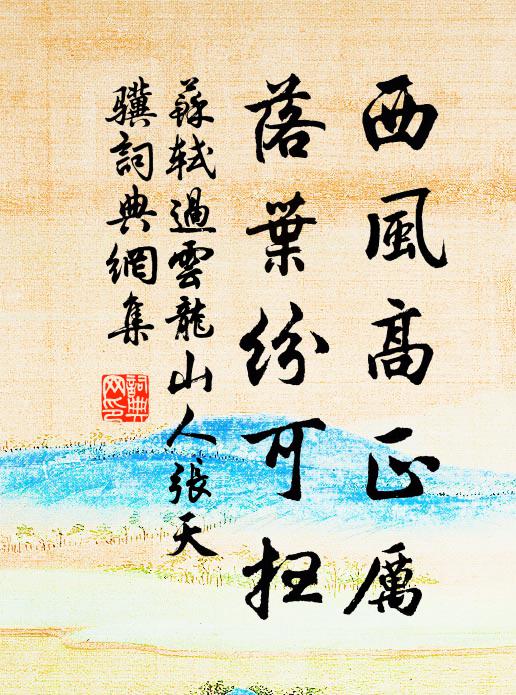 西風高正厲
落葉紛可掃
蘇軾過雲龍山人張天
驥詞典網集
詞典
网印